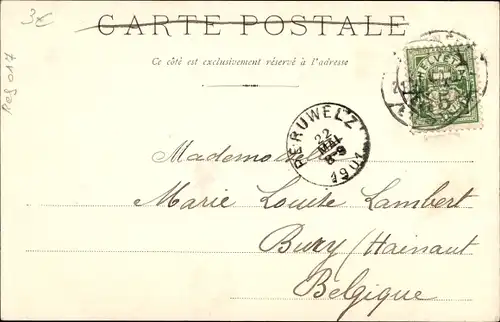 3€
CARTE POSTALE
Ce côté est exclusivement réservé à l'adresse
Res 017
HELVETIA
PERUWELZ
22
MAI
8-9
1901
Mademoiselle
Marie Louise Lambert
Bury (Hainaut
Belgique